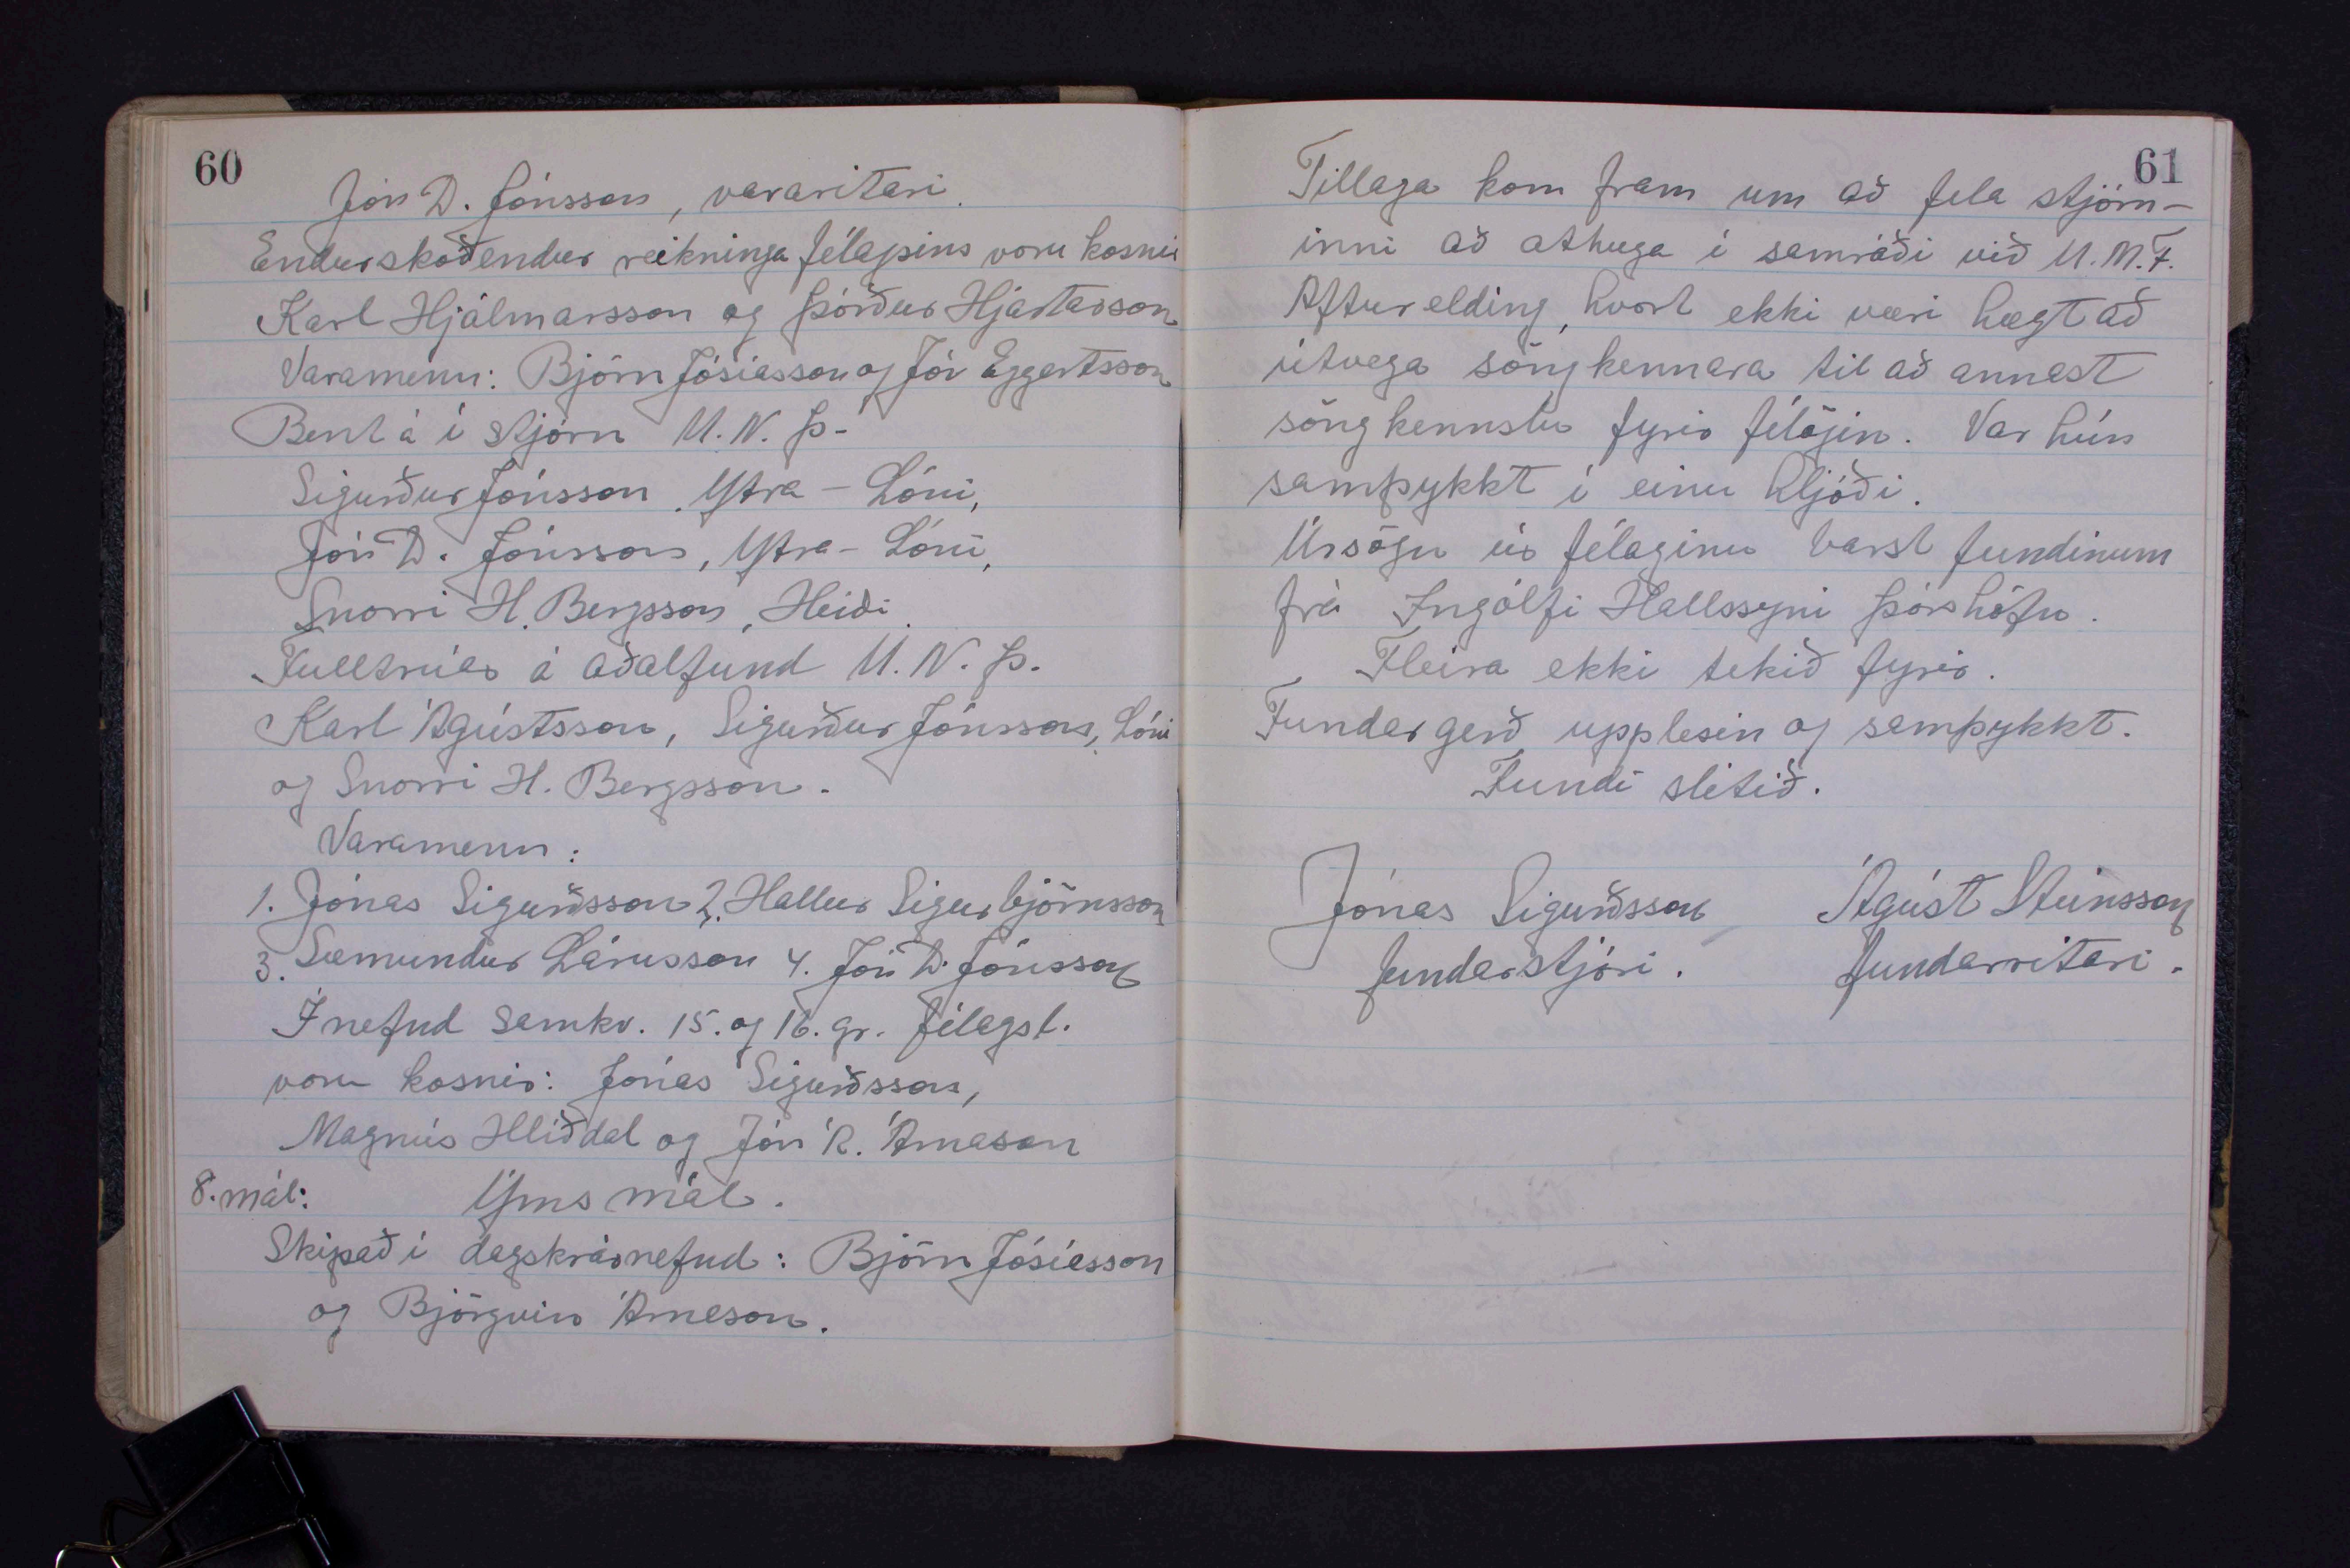 60
Jón D. Jónsson, vararitari.
Endurskoðendur reikninga félagsins voru kosnir
Karl Hjálmarsson og Þórður Hjartarson
Varamenn: Björn Jósíasson og Jón Eggertsson
Bent á í stjórn U. N. Þ.
Sigurður Jónsson, Ytra-Lóni,
Jón D. Jónsson, Ytra-Lóni,
Snorri H. Bergsson, Heiði.
Fulltrúar á aðalfund U. N. Þ.
Karl Ágústsson, Sigurður Jónsson, Lóni
og Snorri H. Bergsson.
Varamenn:
1. Jónas Sigurðsson 2. Hallur Sigurbjörnsson
3. Sæmundur Lárusson 4. Jón D. Jónsson
Í nefnd samkv. 15. og 16. gr. félagsl.
voru kosnir: Jónas Sigurðsson,
Magnús Hlíðdal og Jón R. Árnason
8. mál: Ýms mál.
Skipað í dagskrárnefnd: Björn Jósíasson
og Björgvin Árnason.
61
Tillaga kom fram um að fela stjórn-
inni að athuga í samráði við U. M. F.
Afturelding, hvort ekki væri hægt að
útvega söngkennara til að annast
söngkennslu fyrir félögin. Var hún
samþykkt í einu hljóði.
Úrsögn úr félaginu barst fundinum
frá Ingólfi Hallssyni Þórshöfn.
Fleira ekki tekið fyrir.
Fundargerð upplesin og samþykkt.
Fundi slitið.
Jónas Sigurðsson Ágúst Steinsson
fundarstjóri. fundarritari.